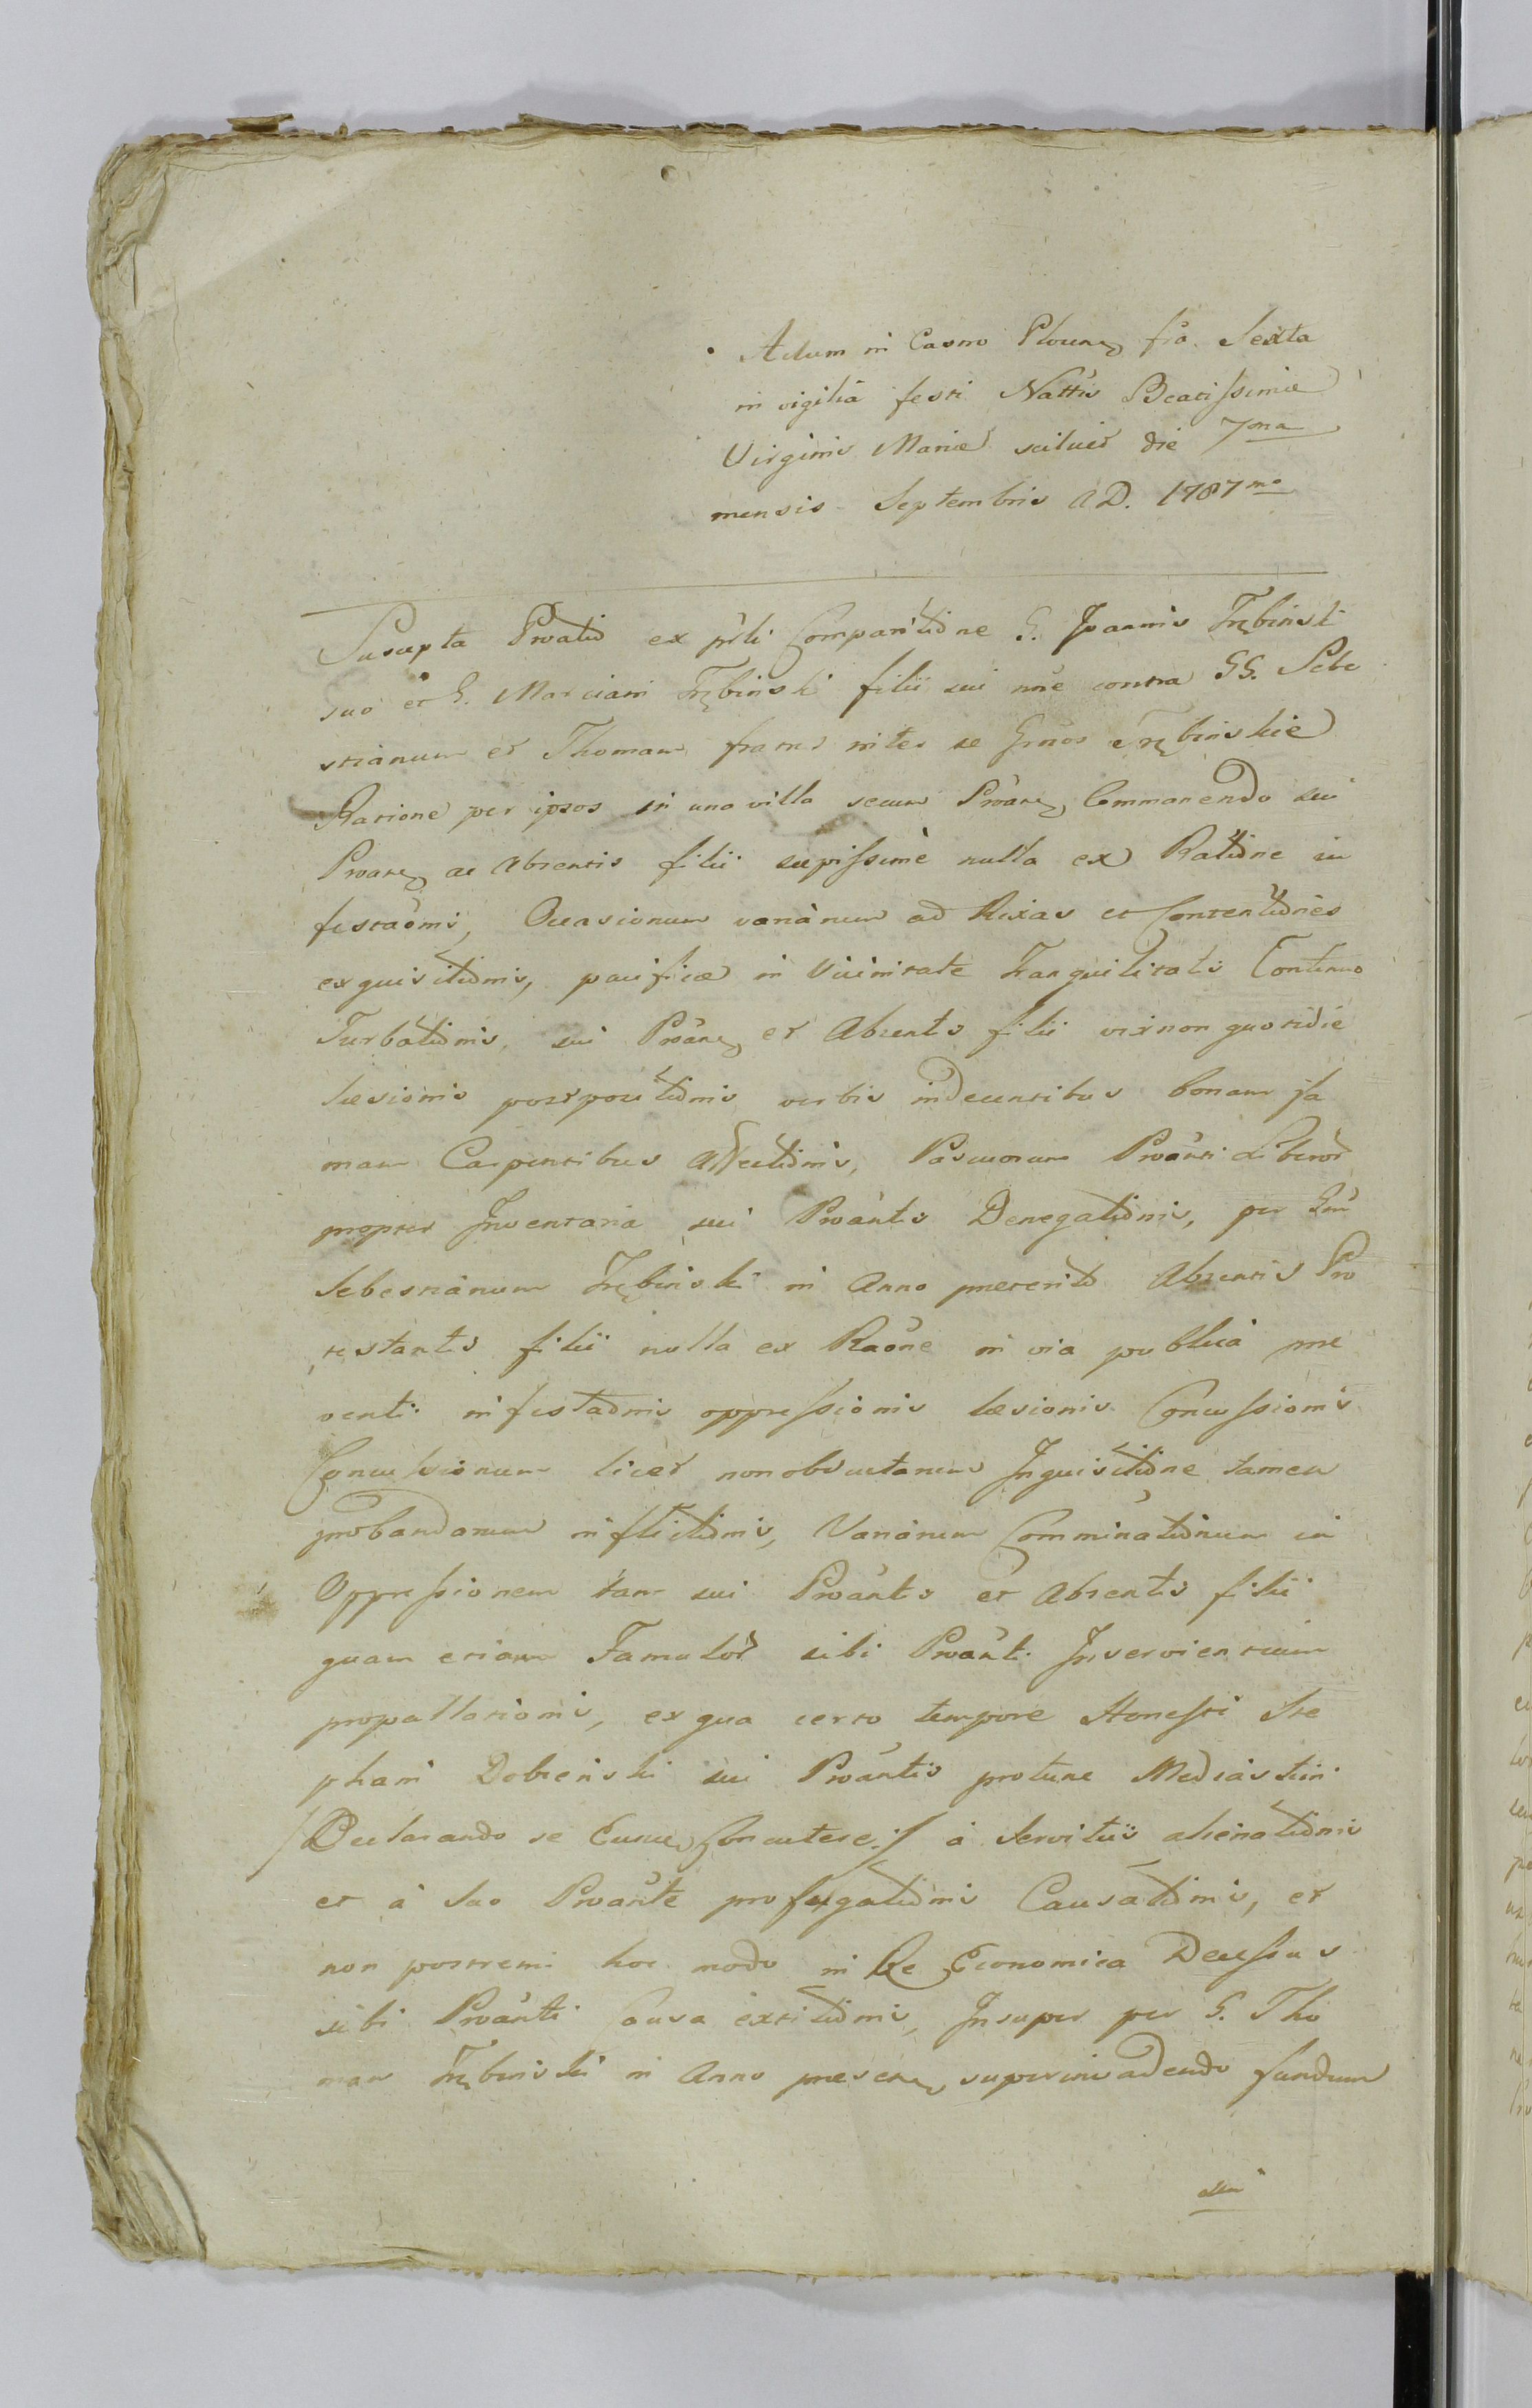 Actum in Castro Plocen, fria Sexta
in vigilia festi Nattis Beatissimæ
Virginis Mariæ scilicet die 7ma
mensis Septembris AD. 1787mo
Suscepta Prvatio ex prsli Comparitione G. Joannis Trębinski
suo et G. Marciani Trębinski filii sui nne contra GG. Sebe
stianum et Thomam fratres inter se Grnos Trębinskie
Ratione per ipsos in una villa secum Prvante Commanendo sui
Prvante ac Absentis filii sæpissime nulla ex Ratione in
festaōnis, Occasionum variarum ad Rixas et Contentiones
exquisitionis, pacificæ in Vicinitate Tranquilitatis Continuo
Turbationis, sui Prvante et Absentis filii vix non quotidie
læsionis postpositionis verbis indecentibus bonam fa
mam Carpentibus Affectionis, Pascuorum Prvanti Liberor
propter Inventaria sui Prvantis Denegationis, per Gnu
Sebestianum Trębinski in Anno præterito Absentis Pro
testantis filii nulla ex Raōne in via publica præ
venti infestaōnis oppressionis læsionis Concussionis
Concussionum licet non obductarum Inquisitione tamen
probandarum inflictionis, Variarum Comminationum in
Oppressionem tam sui Prvantis et Absentis filii
quam etiam Famulor sibi Prvanti Inservientium
propallationis, ex qua certo tempore Honesti Ste
phani Dobrenski sui Prvantis protunc Mediastini
/Declarando se Eume Concutere:/ a Servitiis alienationis
et a suo Prvante profugationis Causationis, et
non postremi hoc modo in Re Economica Decessus
sibi Prvanti Causa extitionis, Insuper per G. Tho
mam Trębinski in Anno præsenti superinvadendo fundum
sui